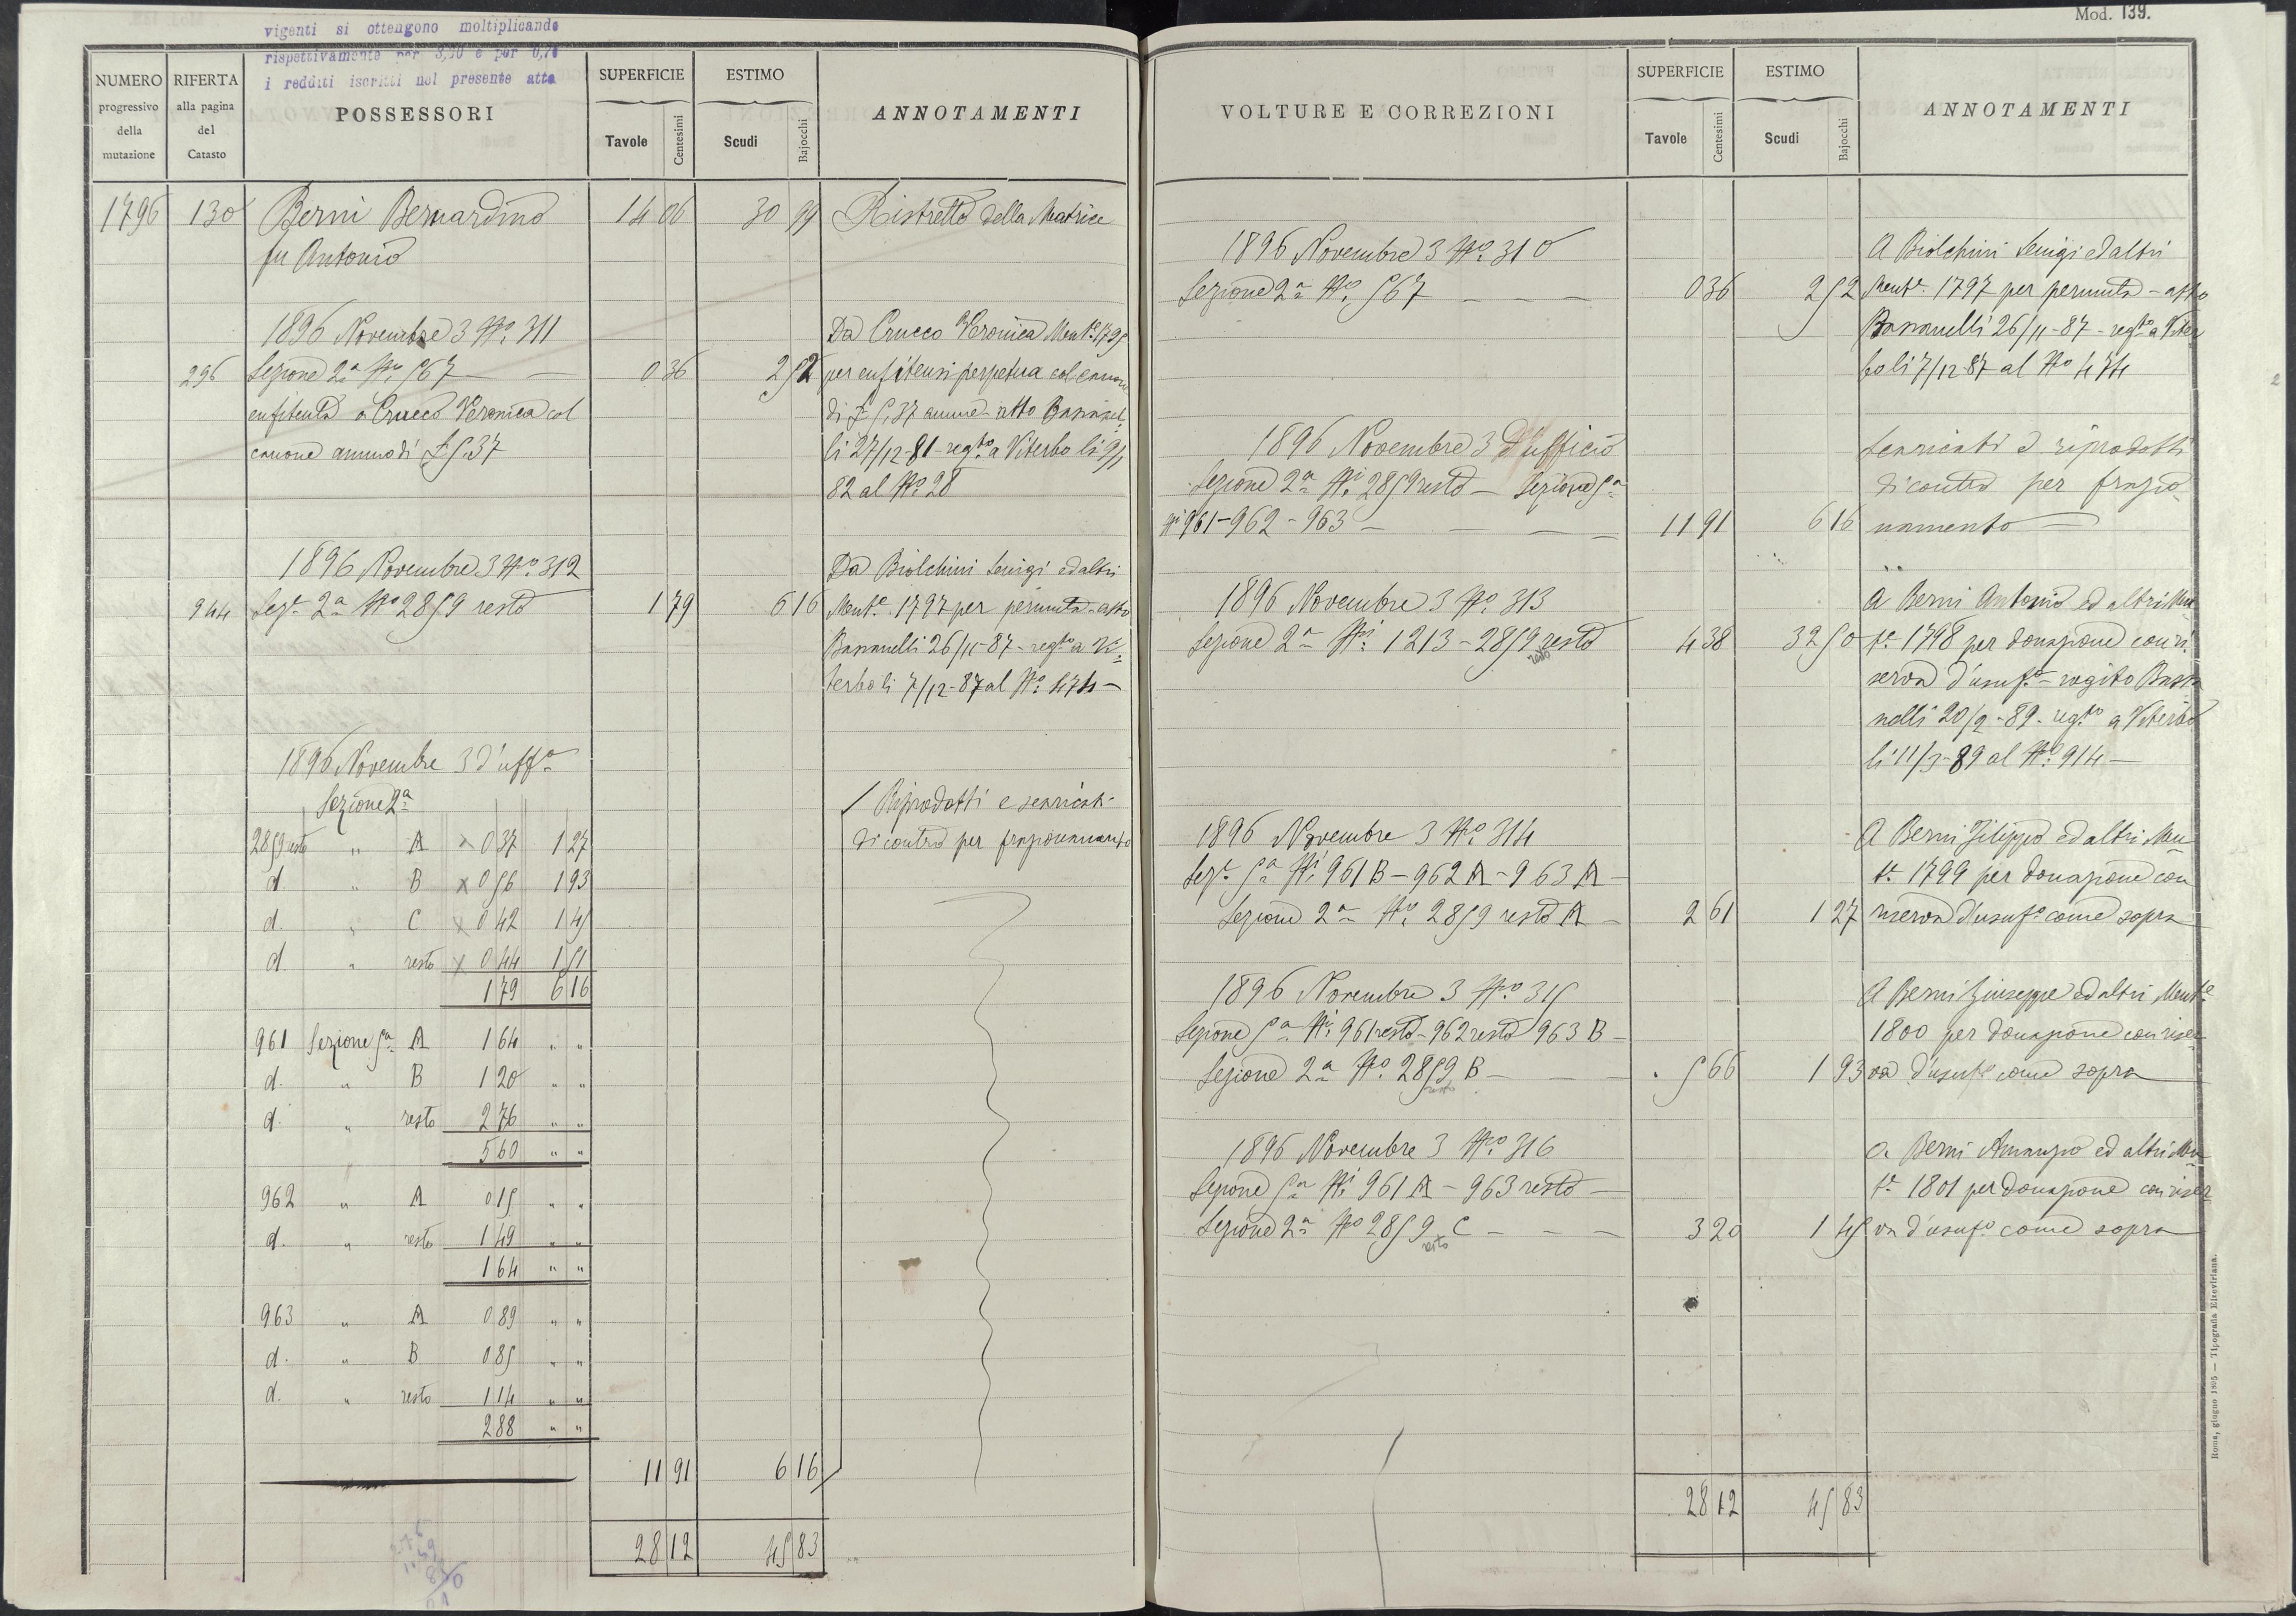 Mod. 139.
vigenti si ottengono moltiplicando
rispettivamente per 3,30 e per 0,78
i redditi iscritti nel presente atto
NUMERO progressivo della mutazione
RIFERTA alla pagina del Catasto
POSSESSORI
SUPERFICIE Tavole Centesimi
ESTIMO Scudi Bajocchi
ANNOTAMENTI
1796 130 Berni Bernardino 14 06 30 99 Ristretto della Matrice
fu Antonio
1896 Novembre 3 No. 311 Da Crucco Veronica Mut.e 1795
296 Sezione 2a No. 567 0 36 2 52 per enfiteusi perpetua col canone
enfiteuta a Crucco Veronica col di £ 5,37 annue atto Bassanel
canone annuo di £ 5.37 li 27/12-81-regto a Viterbo li 9/1
82 al No. 28
1896 Novembre 3 No. 312 Da Biolchini Luigi ed altri
944 Seze 2a No 2859 resto 1 79 6 16 Mute. 1797 per permuta - atto
Bassanelli 26/11-87-regto a Vi
terbo li 7/12-87 al No. 474 -
1896 Novembre 3 d'uffo
Sezione 2a
Riprodotti e scaricati
2859 resto " A 0 37 1 27 di contro per frazionamento
d. " B 0 56 1 93
d. " C 0 42 1 45
d. " resto 0 44 1 51
1 79 6 16
961 Sezione 5a A 1 64 " "
d. " B 1 20 " "
d. " resto 2 76 " "
5 60 " "
962 " A 0 15 " "
d. " resto 1 49 " "
1 64 " "
963 " A 0 89 " "
d. " B 0 85 " "
d. " resto 1 14 " "
2 88 " "
11 91 6 16
28 12 45 83
VOLTURE E CORREZIONI
SUPERFICIE Tavole Centesimi
ESTIMO Scudi Bajocchi
ANNOTAMENTI
1896 Novembre 3 No. 310 A Biolchini Luigi ed altri
Sezione 2a No. 567 - - - 0 36 2 52 Mute. 1797 per permuta - atto
Bassanelli 26/11-87-regto a Viter
bo li 7/12-87 al No 474
1896 Novembre 3 d'ufficio Scaricati e riprodotti
Sezione 2a Ni 2859 resto - Sezione 5a di contro per frazio
Ni 961-962-963 - 11 91 6 16 namento
1896 Novembre 3 No. 313 A Berni Antonio ed altri Mu
Sezione 2a Ni 1213-2859 resto 4 38 32 50 te. 1798 per donazione con ri
resto
serva d'usufo - rogito Bassa
nelli 20/2-89-regto a Viterbo
li 11/3-89 al No. 914 -
1896 Novembre 3 No. 314 A Berni Filippo ed altri Mu
Seze 5a Ni 961 B - 962 A - 963 A - te 1799 per donazione con
Sezione 2a No. 2859 resto A - 2 61 1 27 riserva d'usufo come sopra
1896 Novembre 3 No. 315 A Berni Giuseppe ed altri Mute
Sezione 5a Ni 961 resto - 962 resto 963 B - 1800 per donazione con riser
Sezione 2a No. 2859 B - - 5 66 1 93 va d'usufo come sopra
resto
1896 Novembre 3 No. 316 a Berni Amanzio ed altri Mu
Sezione 5a Ni 961 A - 963 resto - te 1801 per donazione con riser
Sezione 2a No 2859 C - - - 3 20 1 45 va d'usufo come sopra
resto
28 12 45 83
Roma, giugno 1895 — Tipografia Elzeviriana.